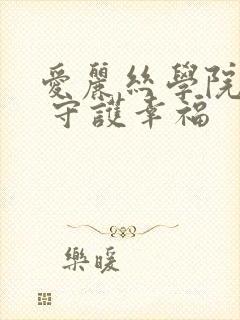 愛麗絲學院
守護幸福
樂暖